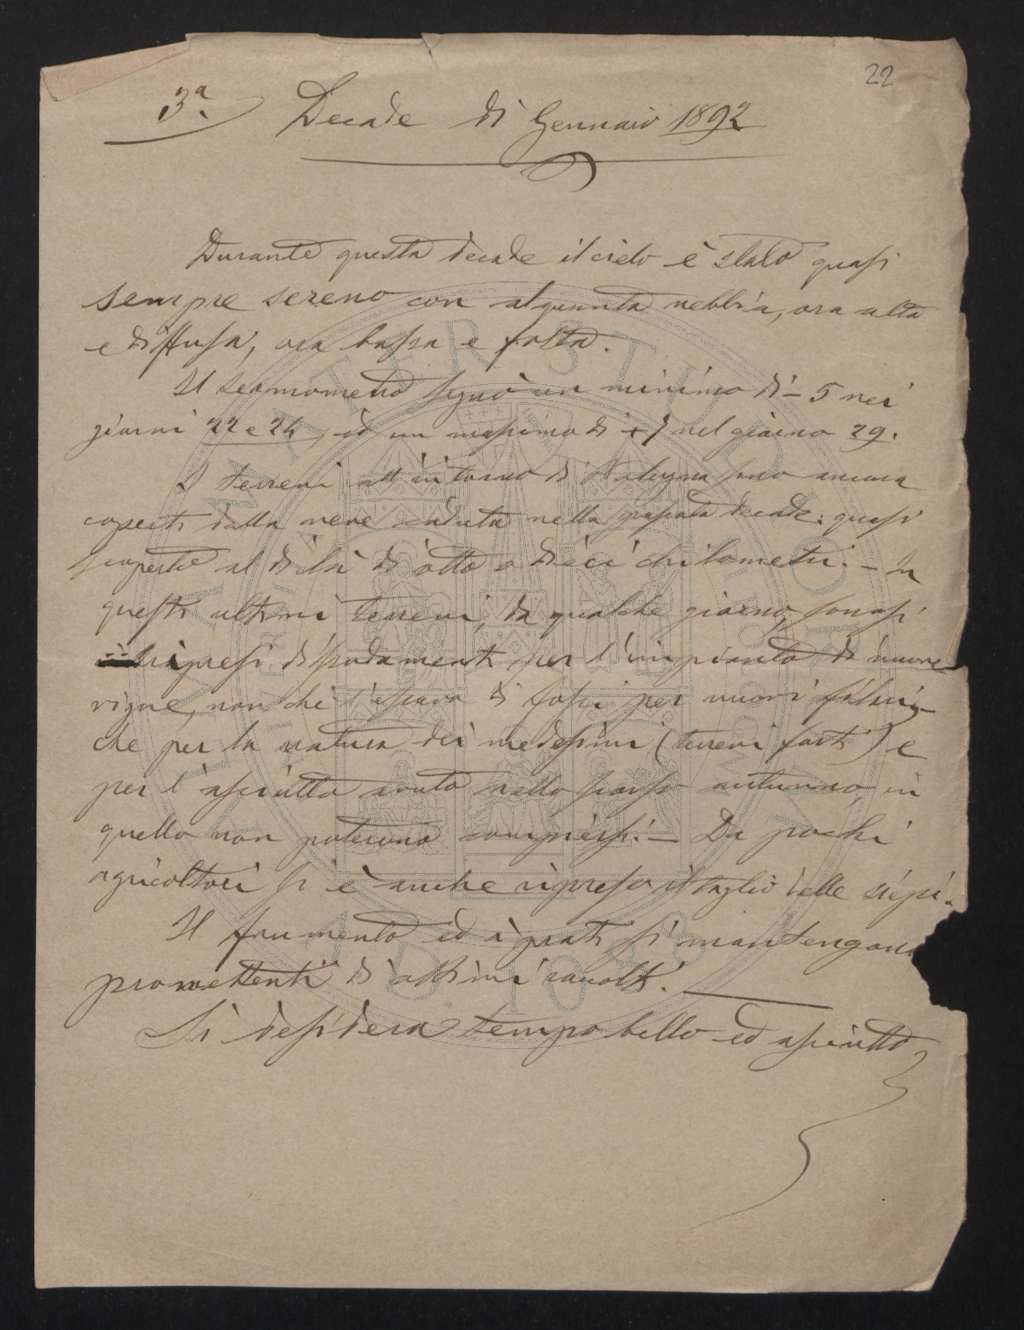 22
3ª. Decade di Gennaio 1892
Durante questa decade il cielo è stato quasi
sempre sereno con alquanta nebbia, ora alta
e diffusa, ora bassa e folta.
Il termometro segnò un minimo di - 5 nei
giorni 22 e 24, ed un massimo di + 7 nel giorno 29.
I terreni all'intorno di Bologna sono ancora
coperti dalla neve caduta nella passata decade: quasi
scoperti al di là di otto o dieci chilometri. - In
questi ultimi terreni, da qualche giorno, sonosi
ripresi di fondamenti per l'impianto di nuove
vigne, non che di fossi per nuovi
che per la natura dei medesimi (terreni forti) e
per l'asciutto avuto nello scorso autunno, in
quello non potevano compiersi. - Da pochi
agricoltori si è anche ripreso il taglio delle siepi.
Il frumento ed i prati si mantengono
promettenti di ottimi raccolti.
Si desidera tempo bello ed asciutto